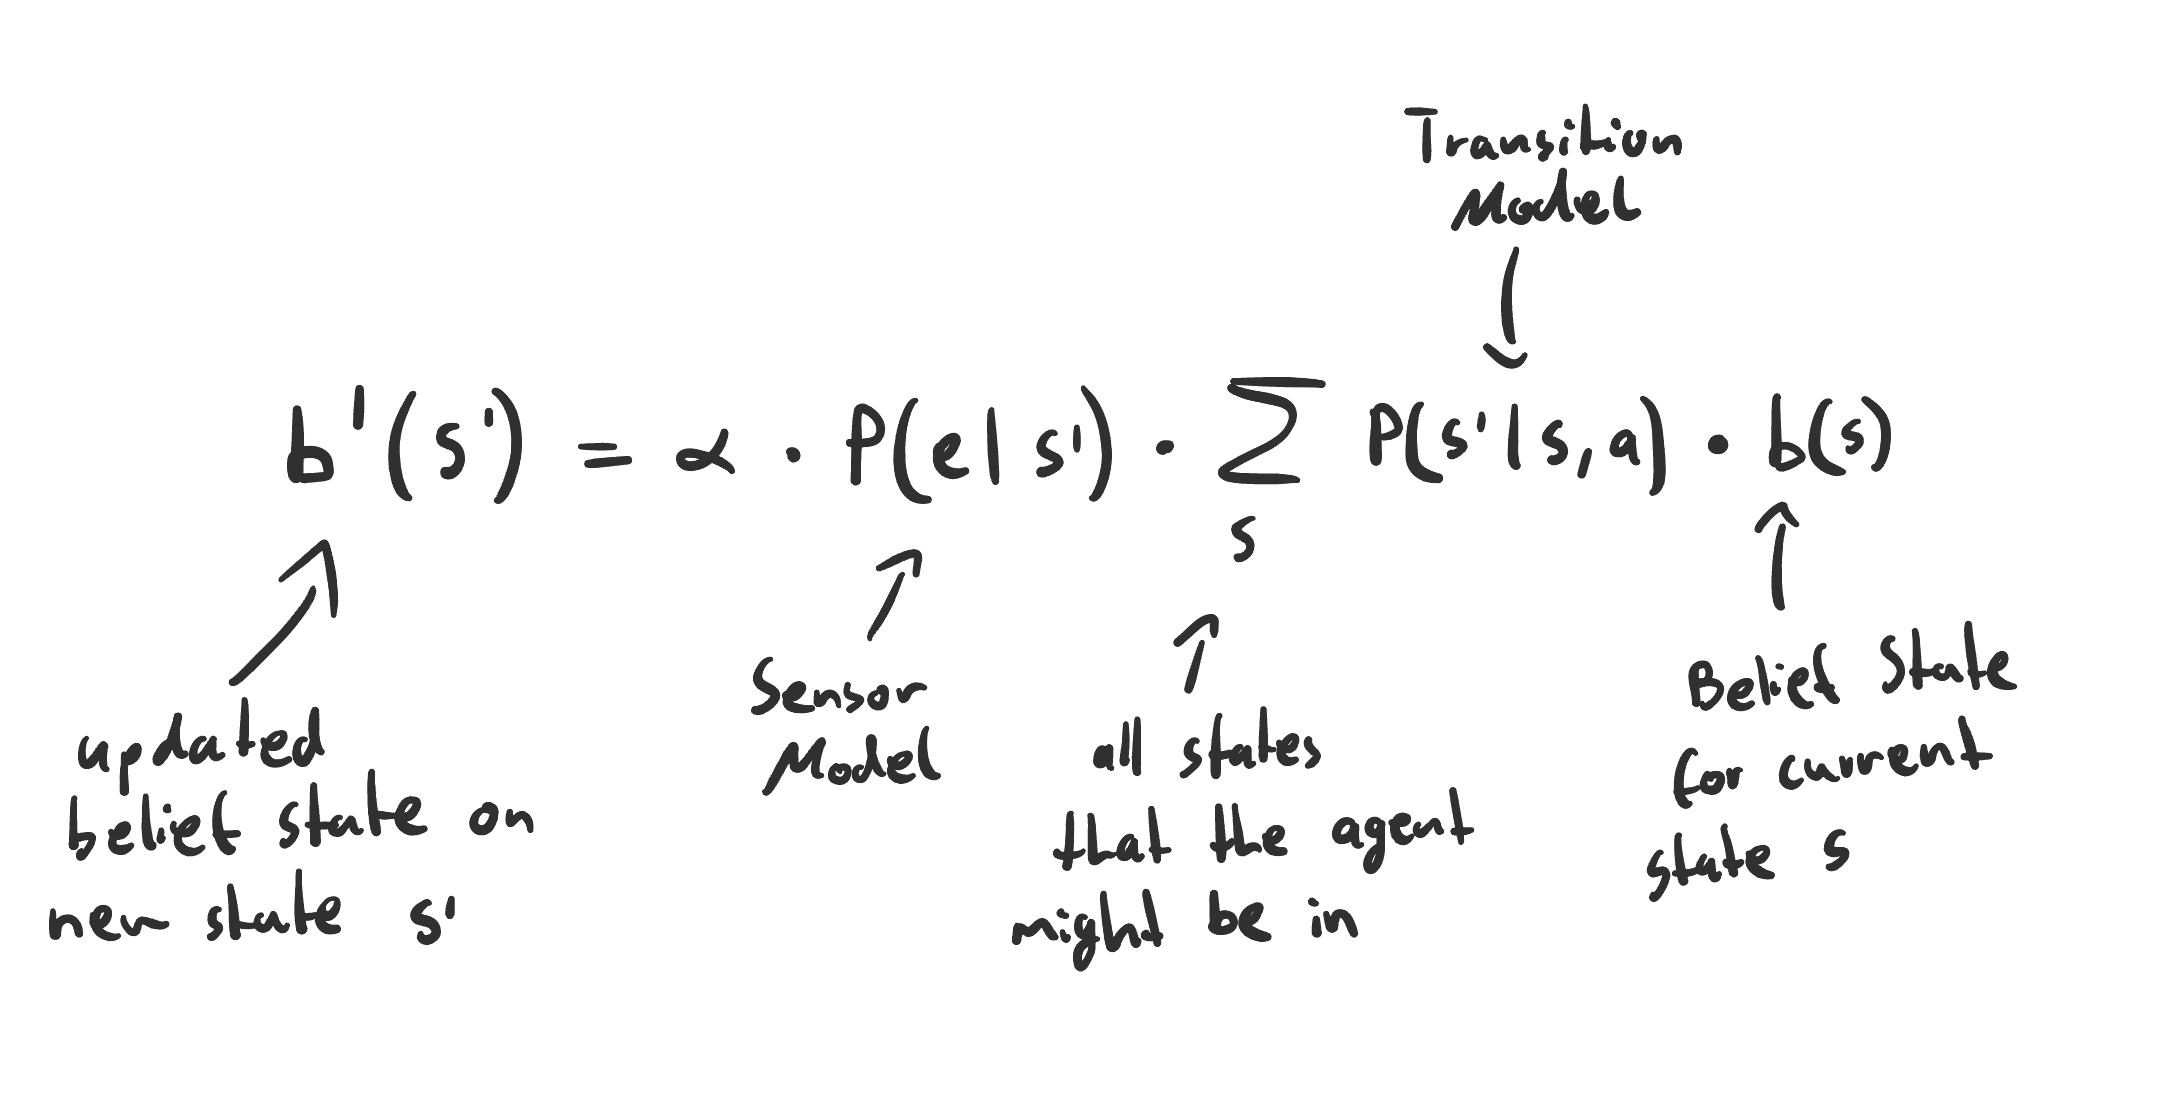 Transition
Model
b'(s') = α · P(e | s') · ∑ P(s' | s, a) · b(s)
s
updated
belief state on
new state s'
Sensor
Model
all states
that the agent
might be in
Belief State
for current
state s